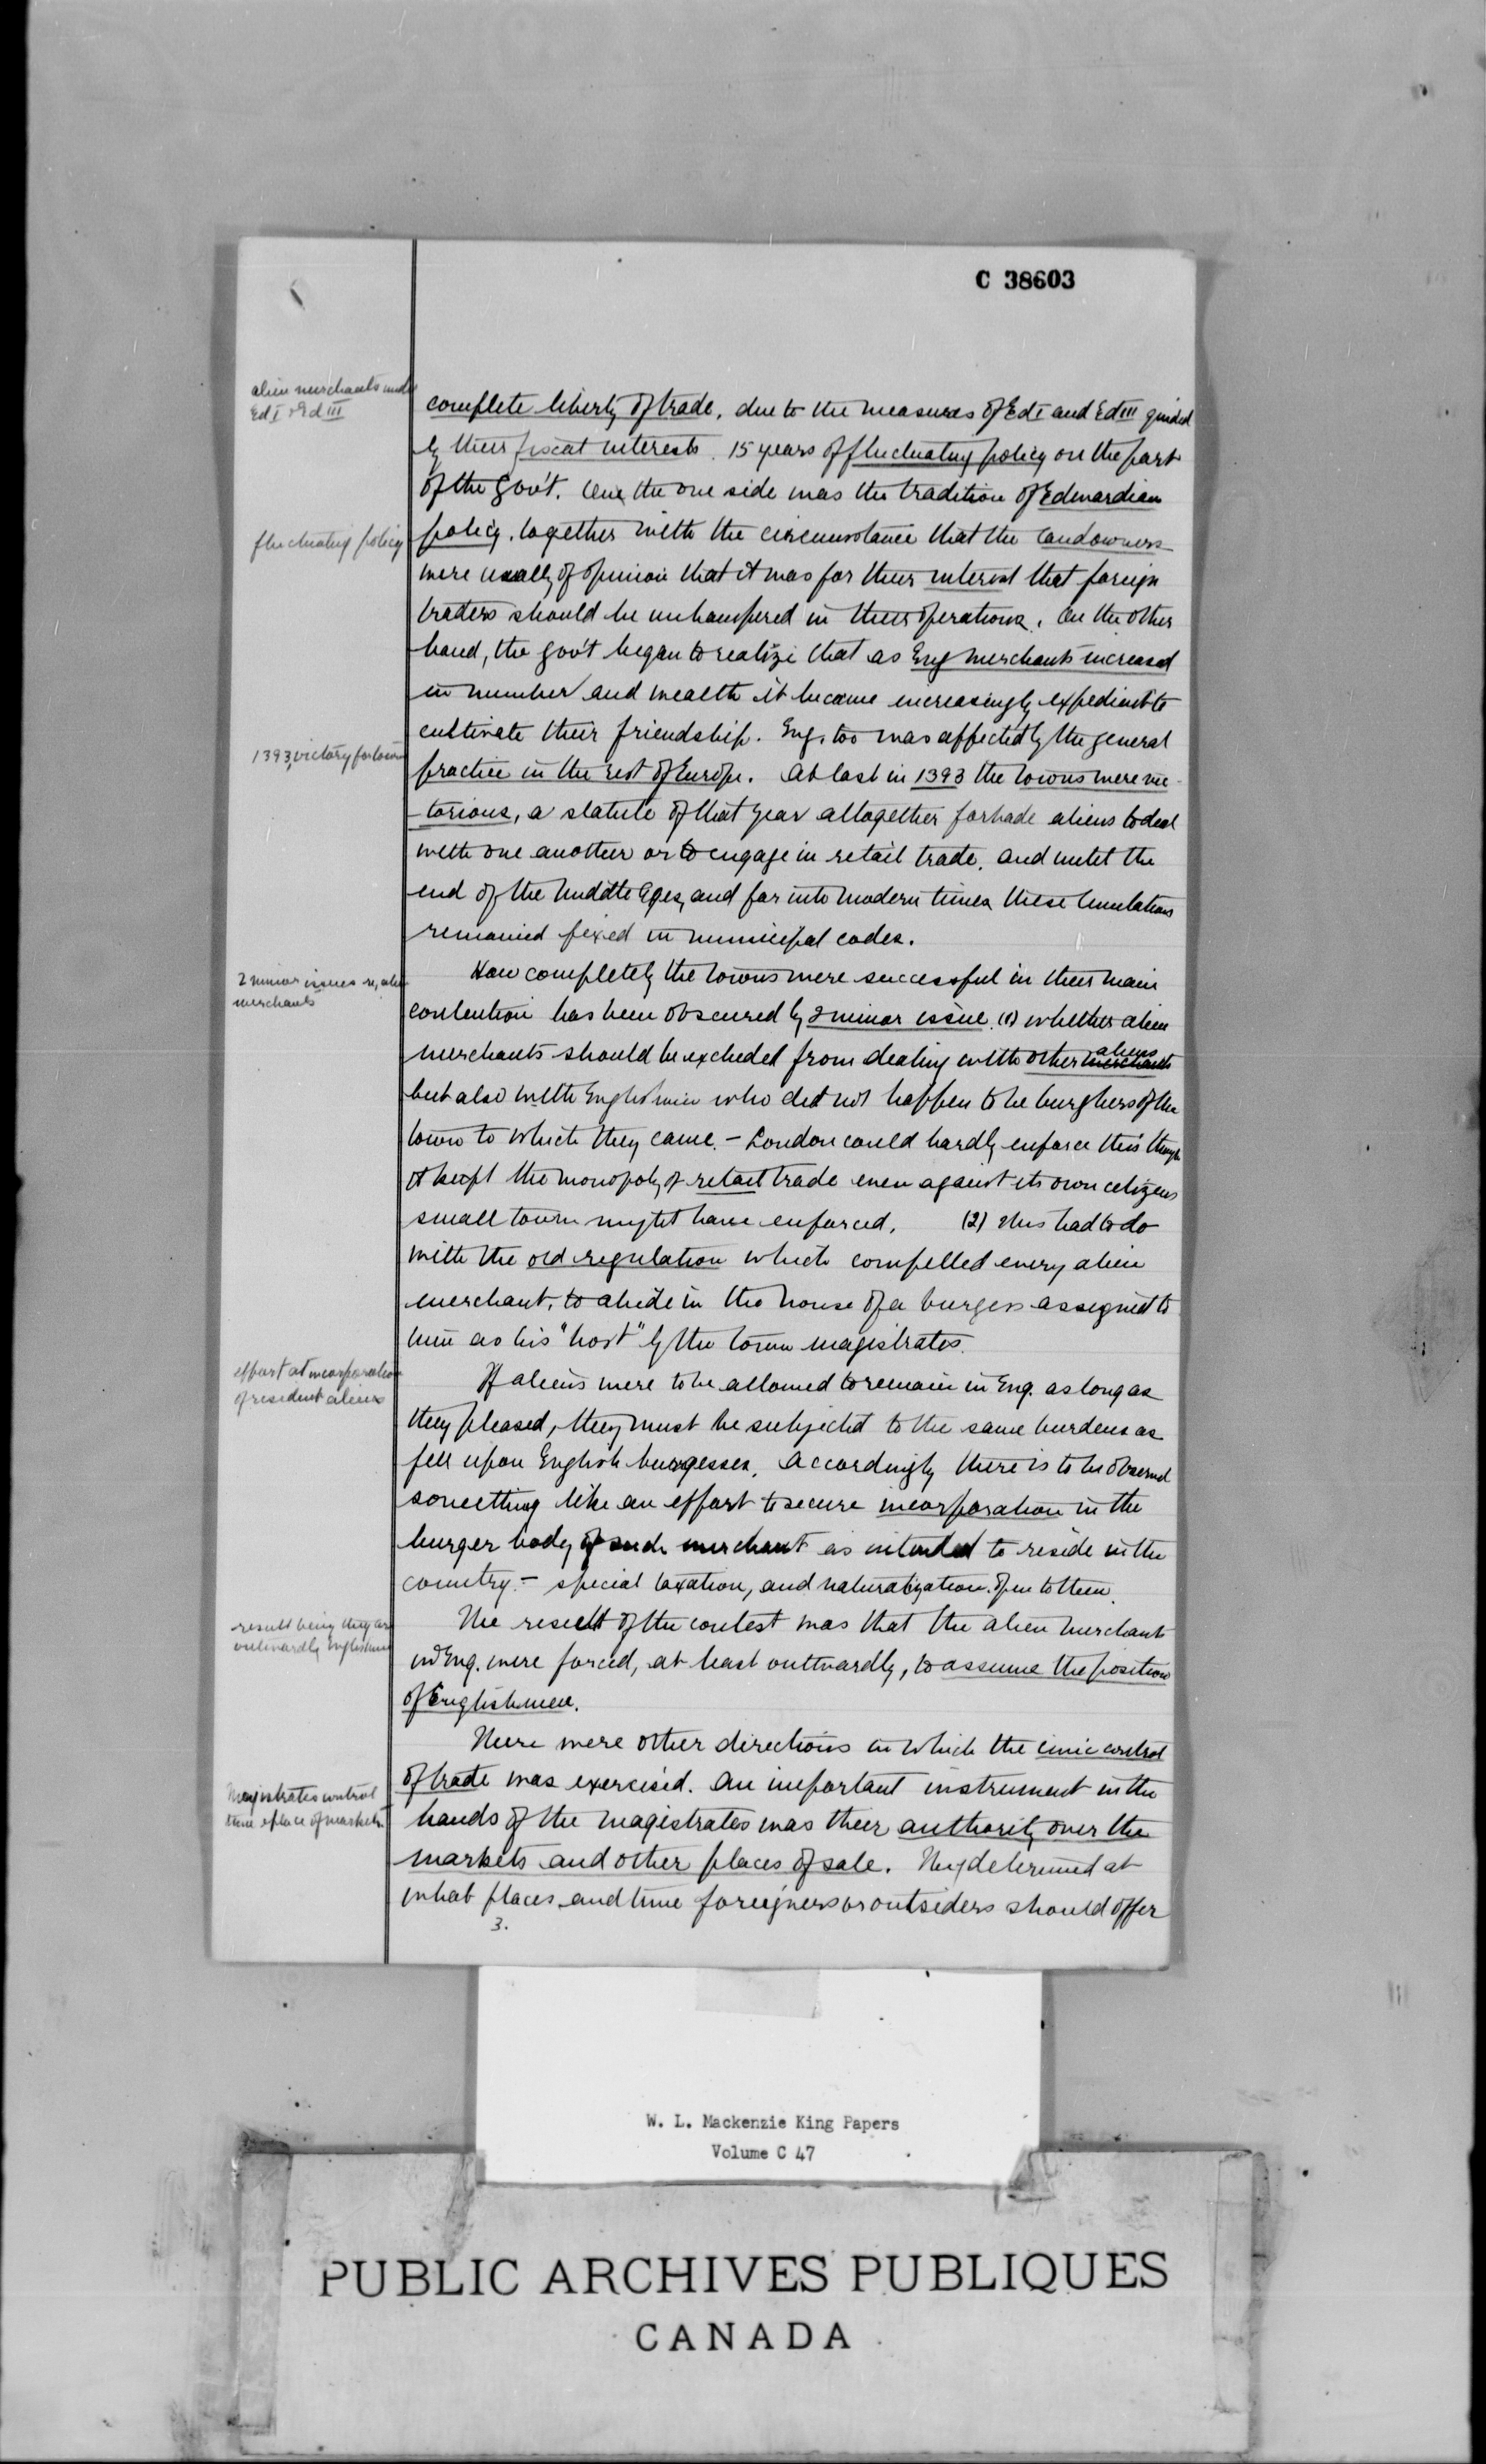 C 38603
alien merchants under
Ed I & Ed III
complete liberty of trade, due to the measures of Ed I and Ed III guided
by their fiscal interests. 15 years of fluctuating policy on the part
of the Gov't. One the one side was the tradition of Edwardian
fluctuating policy
policy, together with the circumstance that the landowners
were usually of opinion that it was for their interest that foreign
traders should be unhampered in their operations. On the other
hand, the gov't began to realize that as Eng merchants increased
in number and wealth it became increasingly expedient to
cultivate their friendship. Eng. too was affected by the general
1393, victory for towns
practice in the rest of Europe. At last in 1393 the towns were vic-
-torious, a statute of that year altogether forbade aliens to deal
with one another or to engage in retail trade, and until the
end of the Middle Ages, and far into modern times these limitations
remained fixed in municipal codes.
2 minor issues re, alien
merchants
How completely the towns were successful in their main
contention has been obscured by 2 minor issue. (1) whether alien
merchants should be excluded from dealing with other merchants aliens
but also with Englishmen who did not happen to be burghers of the
town to which they came. - London could hardly enforce this though
it kept the monopoly of retail trade even against its own citizens
small town might have enforced. (2) This had to do
with the old regulation which compelled every alien
merchant, to abide in the house of a burgess assigned to
him as his "host" by the town magistrates.
effort at incorporation
of resident aliens
If aliens were to be allowed to remain in Eng. as long as
they pleased, they must be subjected to the same burdens as
fell upon English burgesses. Accordingly there is to be observed
something like an effort to secure incorporation in the
burger body of such merchant as intended to reside in the
country. - special taxation, and naturalization open to them.
result being they are
outwardly Englishmen
The result of the contest was that the alien merchant
in Eng. were forced, at least outwardly, to assume the position
of Englishmen.
There were other directions in which the civic control
Magistrates control
time & place of markets
of trade was exercised. An important instrument in the
hands of the magistrates was their authority over the
markets and other places of sale. They determined at
what places and time foreigners or outsiders should offer
3.
W. L. Mackenzie King Papers
Volume C 47
PUBLIC ARCHIVES PUBLIQUES
CANADA